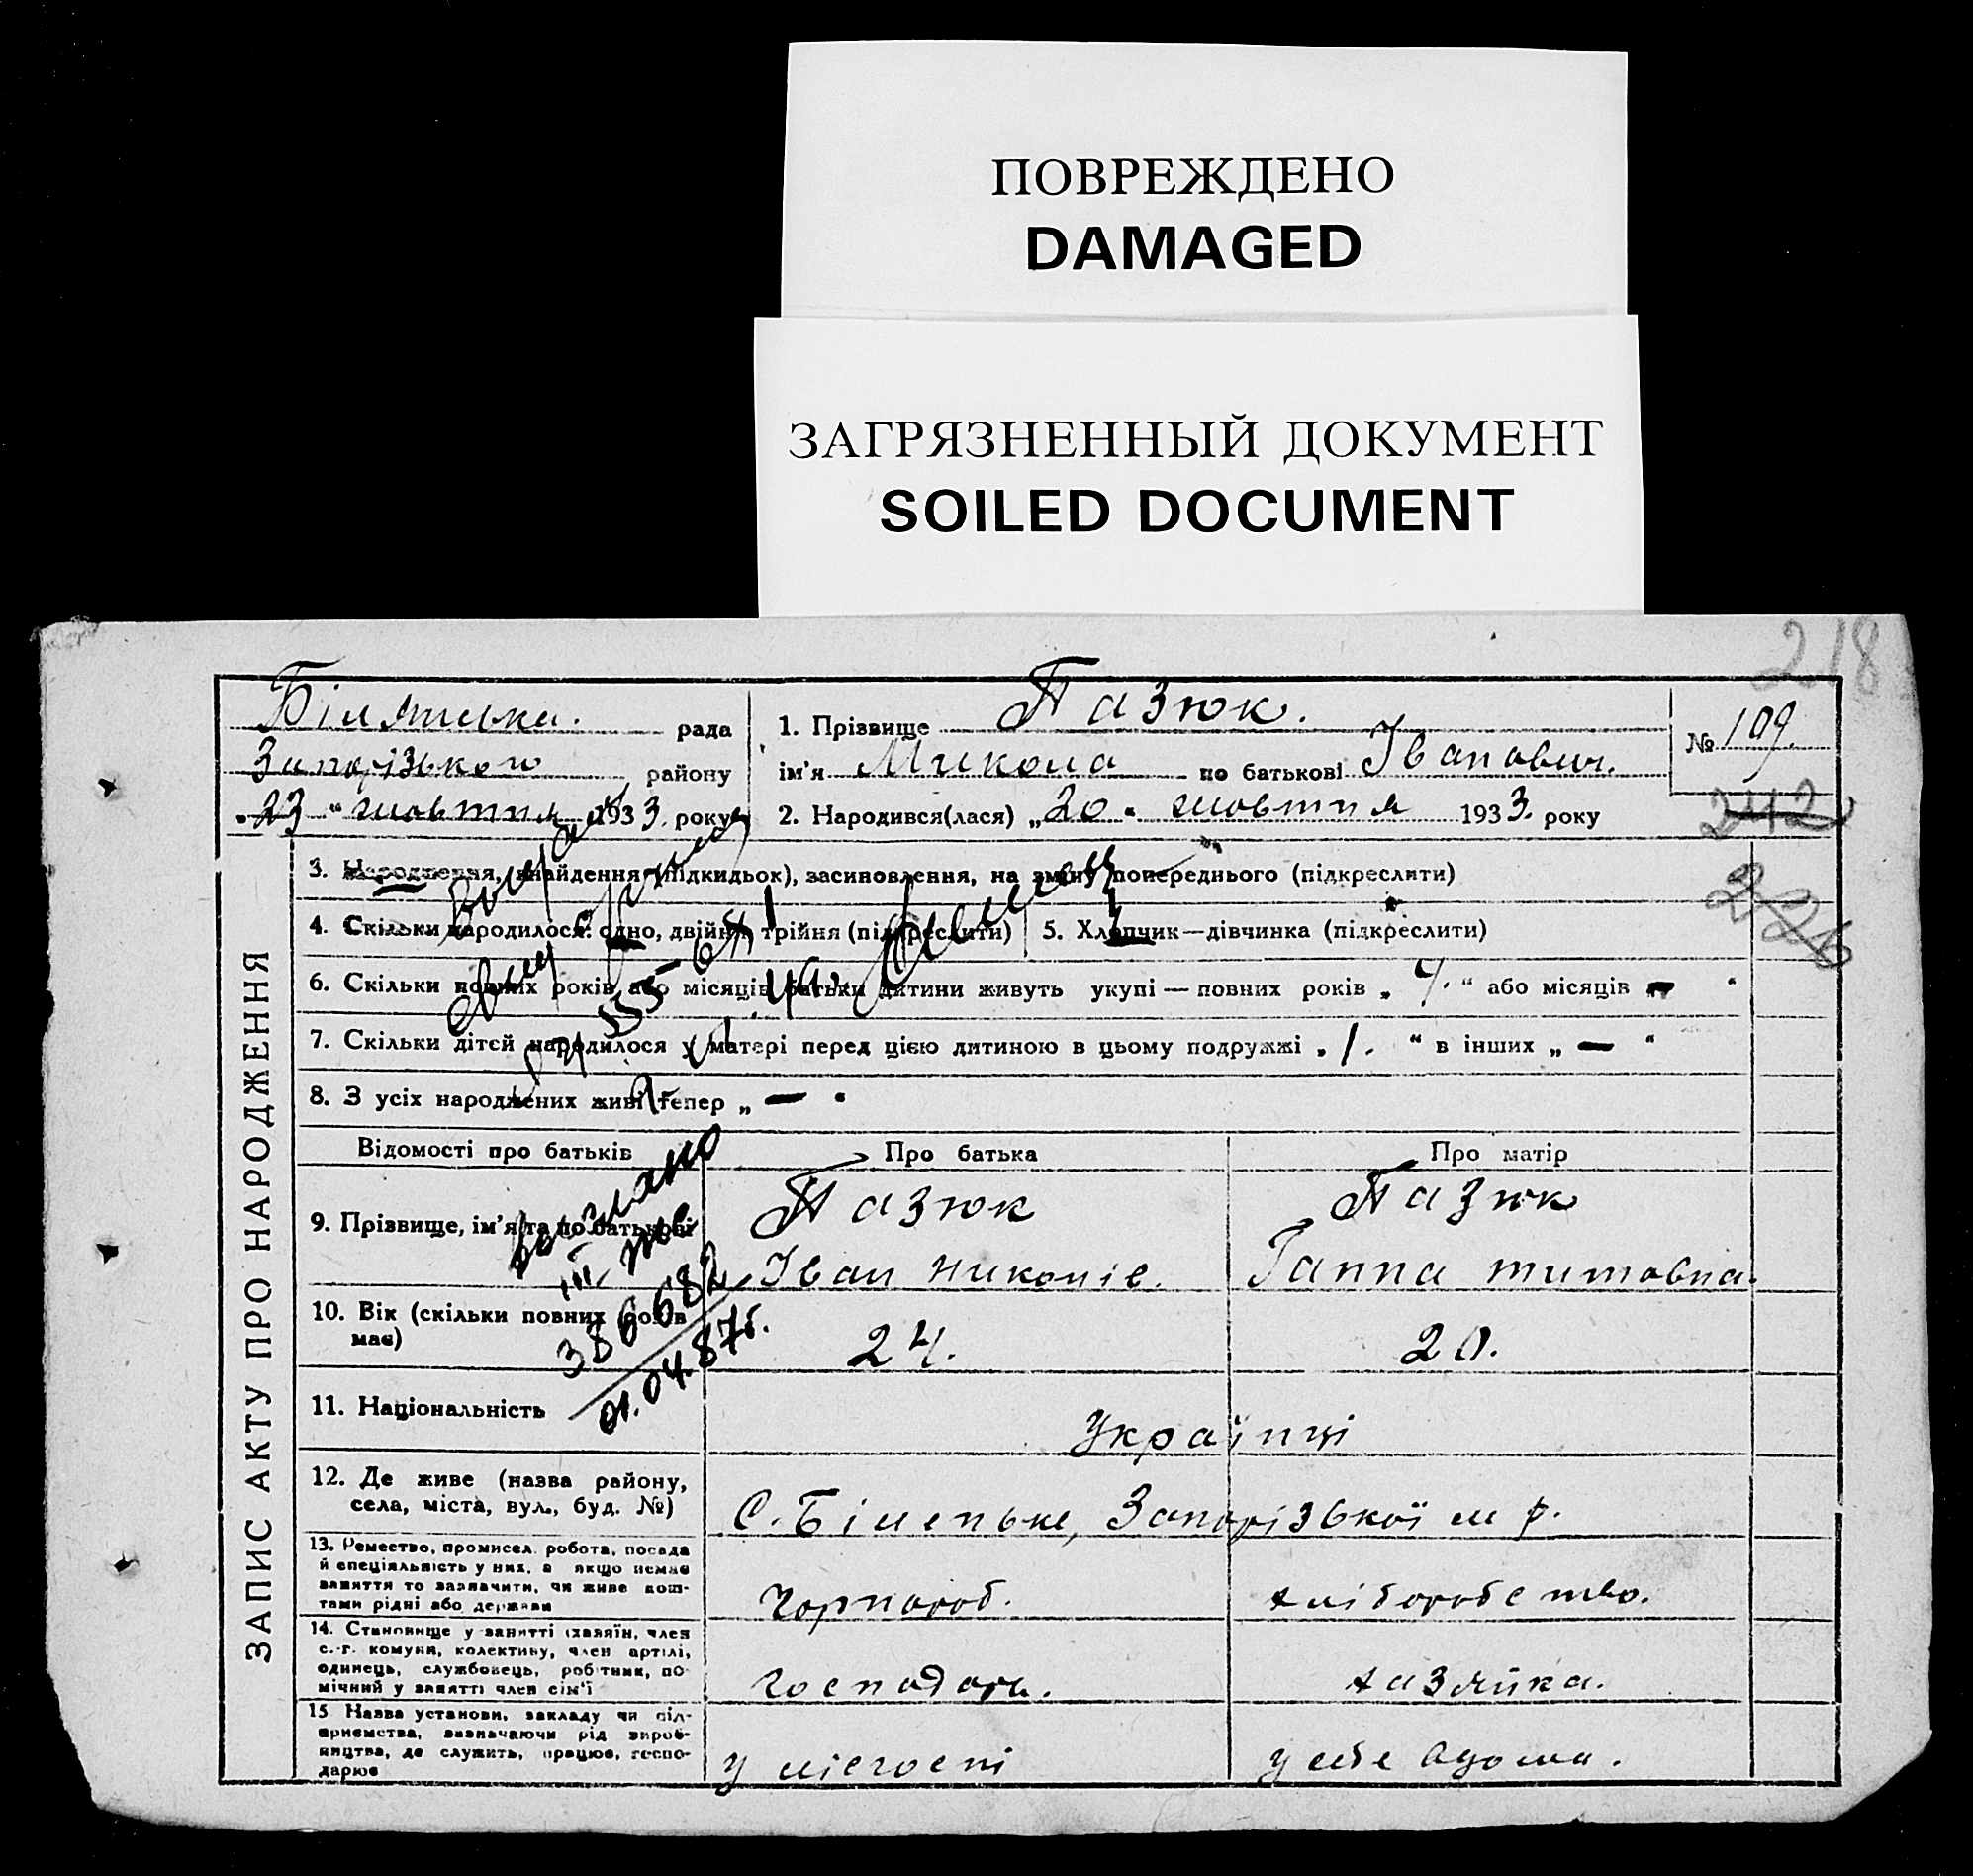 ПОВРЕЖДЕНО
DAMAGED
ЗАГРЯЗНЕННЫЙ ДОКУМЕНТ
SOILED DOCUMENT
218
рада
Запорізького району
„23“ жовтня 1933. року
1. Прізвище Пазюк.
ім'я Микола по батькові Іванович.
2. Народився(лася) „20“ жовтня 1933. року
№ 109.
242
226
ЗАПИС АКТУ ПРО НАРОДЖЕННЯ
3. Народження, знайдення (підкидьок), засиновлення, на зміну попереднього (підкреслити)
4. Скільки народилося: одно, двійня, трійня (підкреслити)
5. Хлопчик—дівчинка (підкреслити)
6. Скільки повних років або місяців батьки дитини живуть укупі — повних років „4.“ або місяців „—“
7. Скільки дітей народилося у матері перед цією дитиною в цьому подружжі „1.“ в інших „—“
8. З усіх народжених живі тепер „—“
Відомості про батьків
Про батька
Про матір
9. Прізвище, ім'я та по батькові
Пазюк
Іван Николів.
Пазюк
Ганна титовна.
10. Вік (скільки повних років має)
24.
20.
11. Національність
Українці
12. Де живе (назва району,
села, міста, вул., буд. №)
С. Біленьке, Запорізької м р.
13. Ремество, промисел, робота, посада
й спеціяльність у них, а якщо немає
заняття то зазначити, чи живе кош-
тами рідні або держави
Чорнороб.
хліборобство.
14. Становище у занятті (хазяїн, член
с.-г. комуни, колективу, член артілі,
одинець, службовець, робітник, по-
мічний у занятті член сім'ї
господарь.
хазяйка.
15 Назва установи, закладу чи під-
приємства, зазначаючи рід вироб-
ництва, де служить, працює, госпо-
дарює
у
у себе вдома.
386682
01.04.87г.